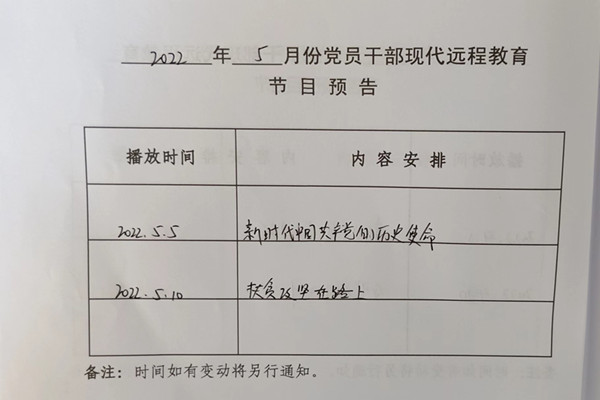 2022 年 5 月份党员干部现代远程教育
节目预告
播放时间 内容安排
2022.5.5 新时代中国共产党的历史使命
2022.5.10 扶贫攻坚在路上
备注：时间如有变动将另行通知。